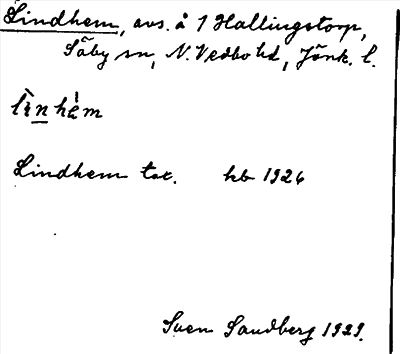 Lindhem, avs. å 1 Hallingstorp,
Säby sn, N. Vedbo hd, Jönk. l.
lìnhèm
Lindhem txt. kb 1926
Sven Sandberg 1929.